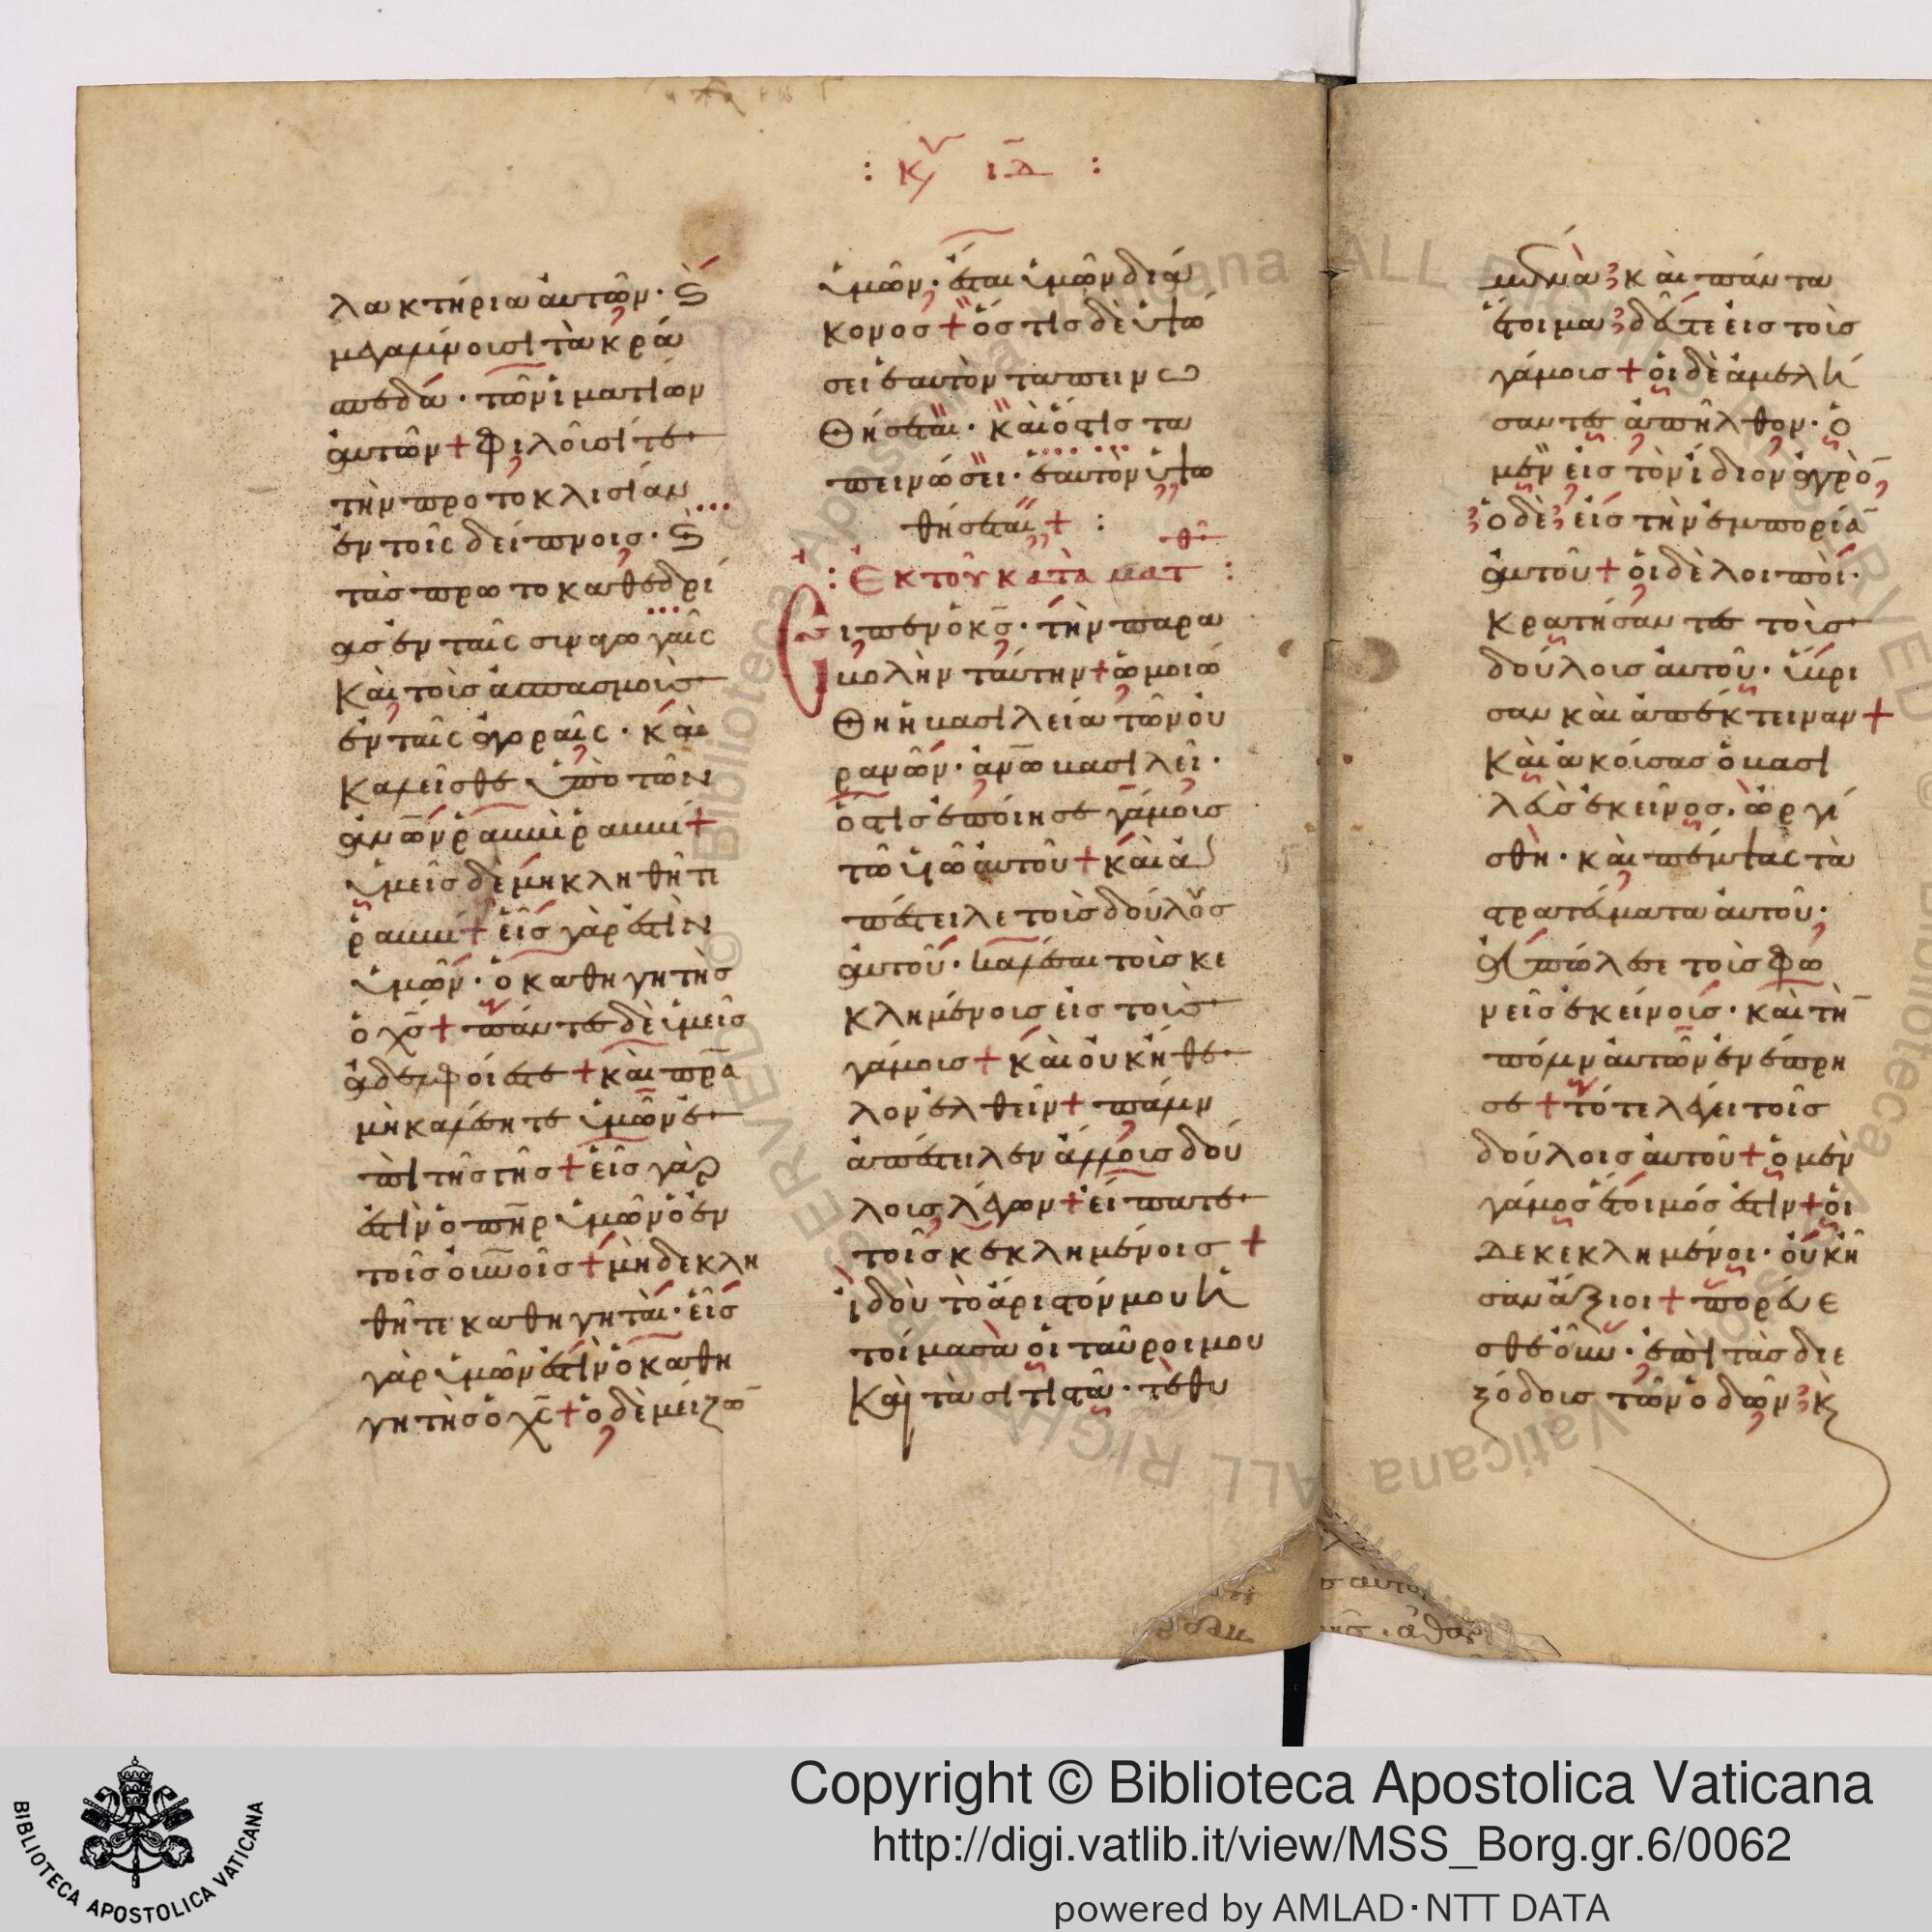 : κυ ιδ :
λακτήρια αὐτῶν· ϗ
μεγαλύνουσι τὰ κρά
σπεδα· τῶν ἱματίων
αὐτῶν + φιλοῦσί τε
τὴν προτοκλισίαν
ἐν τοῖς δείπνοις· ϗ
τὰς πρωτοκαθεδρί
ας ἐν ταῖς συναγωγαῖς
Καὶ τοὺς ἀσπασμοὺς
ἐν ταῖς ἀγοραῖς· καὶ
καλεῖσθε ὑπὸ τῶν
ἀνων ῥαββὶ ῥαββί +
ὑμεῖς δὲ μὴ κληθῆτε
ῥαββί + εἷς γάρ ἐστιν
ὑμῶν· ὁ καθηγητὴς
ὁ χς + πάντες δὲ ὑμεῖς
ἀδελφοί ἐστε + καὶ πρα
μὴ καλέσητε ὑμῶν ἐ
πὶ τῆς γῆς + εἷς γάρ
ἐστιν ὁ πηρ ὑμῶν ὁ ἐν
τοῖς οὐνοῖς + μὴ δὲ κλη
θῆτε καθηγηταί· εἷς
γὰρ ὑμῶν ἐστὶν ὁ καθη
γητὴς ὁ χς + ὁ δὲ μείζω
ὑμῶν· ἔσται ὑμῶν διά
κονος + ὅστις δὲ ὑψώ
σει ἑαυτὸν ταπεινω
θήσεται· καὶ ὅστις τα
πεινώσει· ἑαυτὸν ὑψω
θήσεται + :
: Ἐκ τοῦ κατὰ ματθ :
Εἶπεν ὁ κς· τὴν παρα
βολὴν ταύτην + ὡμοιώ
θη ἡ βασιλεία τῶν οὐ
ρανῶν· ἀνω βασιλεῖ·
ὅστις ἐποίησε γάμους
τῷ υἱῷ αὐτοῦ + καὶ ἀ
πέστειλε τοὺς δούλους
αὐτοῦ· καλέσαι τοὺς κε
κλημένους εἰς τοὺς
γάμους + καὶ οὐκ ἤθε
λον ἐλθεῖν + πάλιν
ἀπέστειλεν ἄλλους δού
λους λέγων + εἴπατε
τοῖς κεκλημένοις +
ἰδοὺ τὸ ἄριστόν μου ἡ
τοίμασα οἱ ταῦροί μου
Καὶ τὰ σιτιστὰ· τεθυ
μένα· καὶ πάντα
ἕτοιμα· δεῦτε εἰς τοὺς
γάμους + οἱ δὲ ἀμελή
σαντες ἀπῆλθον· ὁ
μὲν εἰς τὸν ἴδιον ἀγρὸ
ὁ δὲ εἰς τὴν ἐμπορία
αὐτοῦ + οἱ δὲ λοιποὶ·
Κρατήσαντες τοὺς
δούλους αὐτοῦ· ὕβρι
σαν καὶ ἀπέκτειναν +
Καὶ ἀκούσας ὁ βασι
λεὺς ἐκεῖνος, ὠργί
σθη· καὶ πέμψας τὰ
στρατεύματα αὐτοῦ·
ἀπώλεσε τοὺς φο
νεῖς ἐκείνους· καὶ τὴ
πόλιν αὐτῶν ἐνέπρη
σε + τότε λέγει τοῖς
δούλοις αὐτοῦ + ὁ μὲν
γάμος ἕτοιμός ἐστιν + οἱ
δὲ κεκλημένοι· οὐκ ἦ
σαν ἄξιοι + πορεύε
σθε οὖν· ἐπὶ τὰς διε
ξόδους τῶν ὁδῶν ϗ
Copyright © Biblioteca Apostolica Vaticana
http://digi.vatlib.it/view/MSS_Borg.gr.6/0062
powered by AMLAD·NTT DATA
BIBLIOTECA APOSTOLICA VATICANA